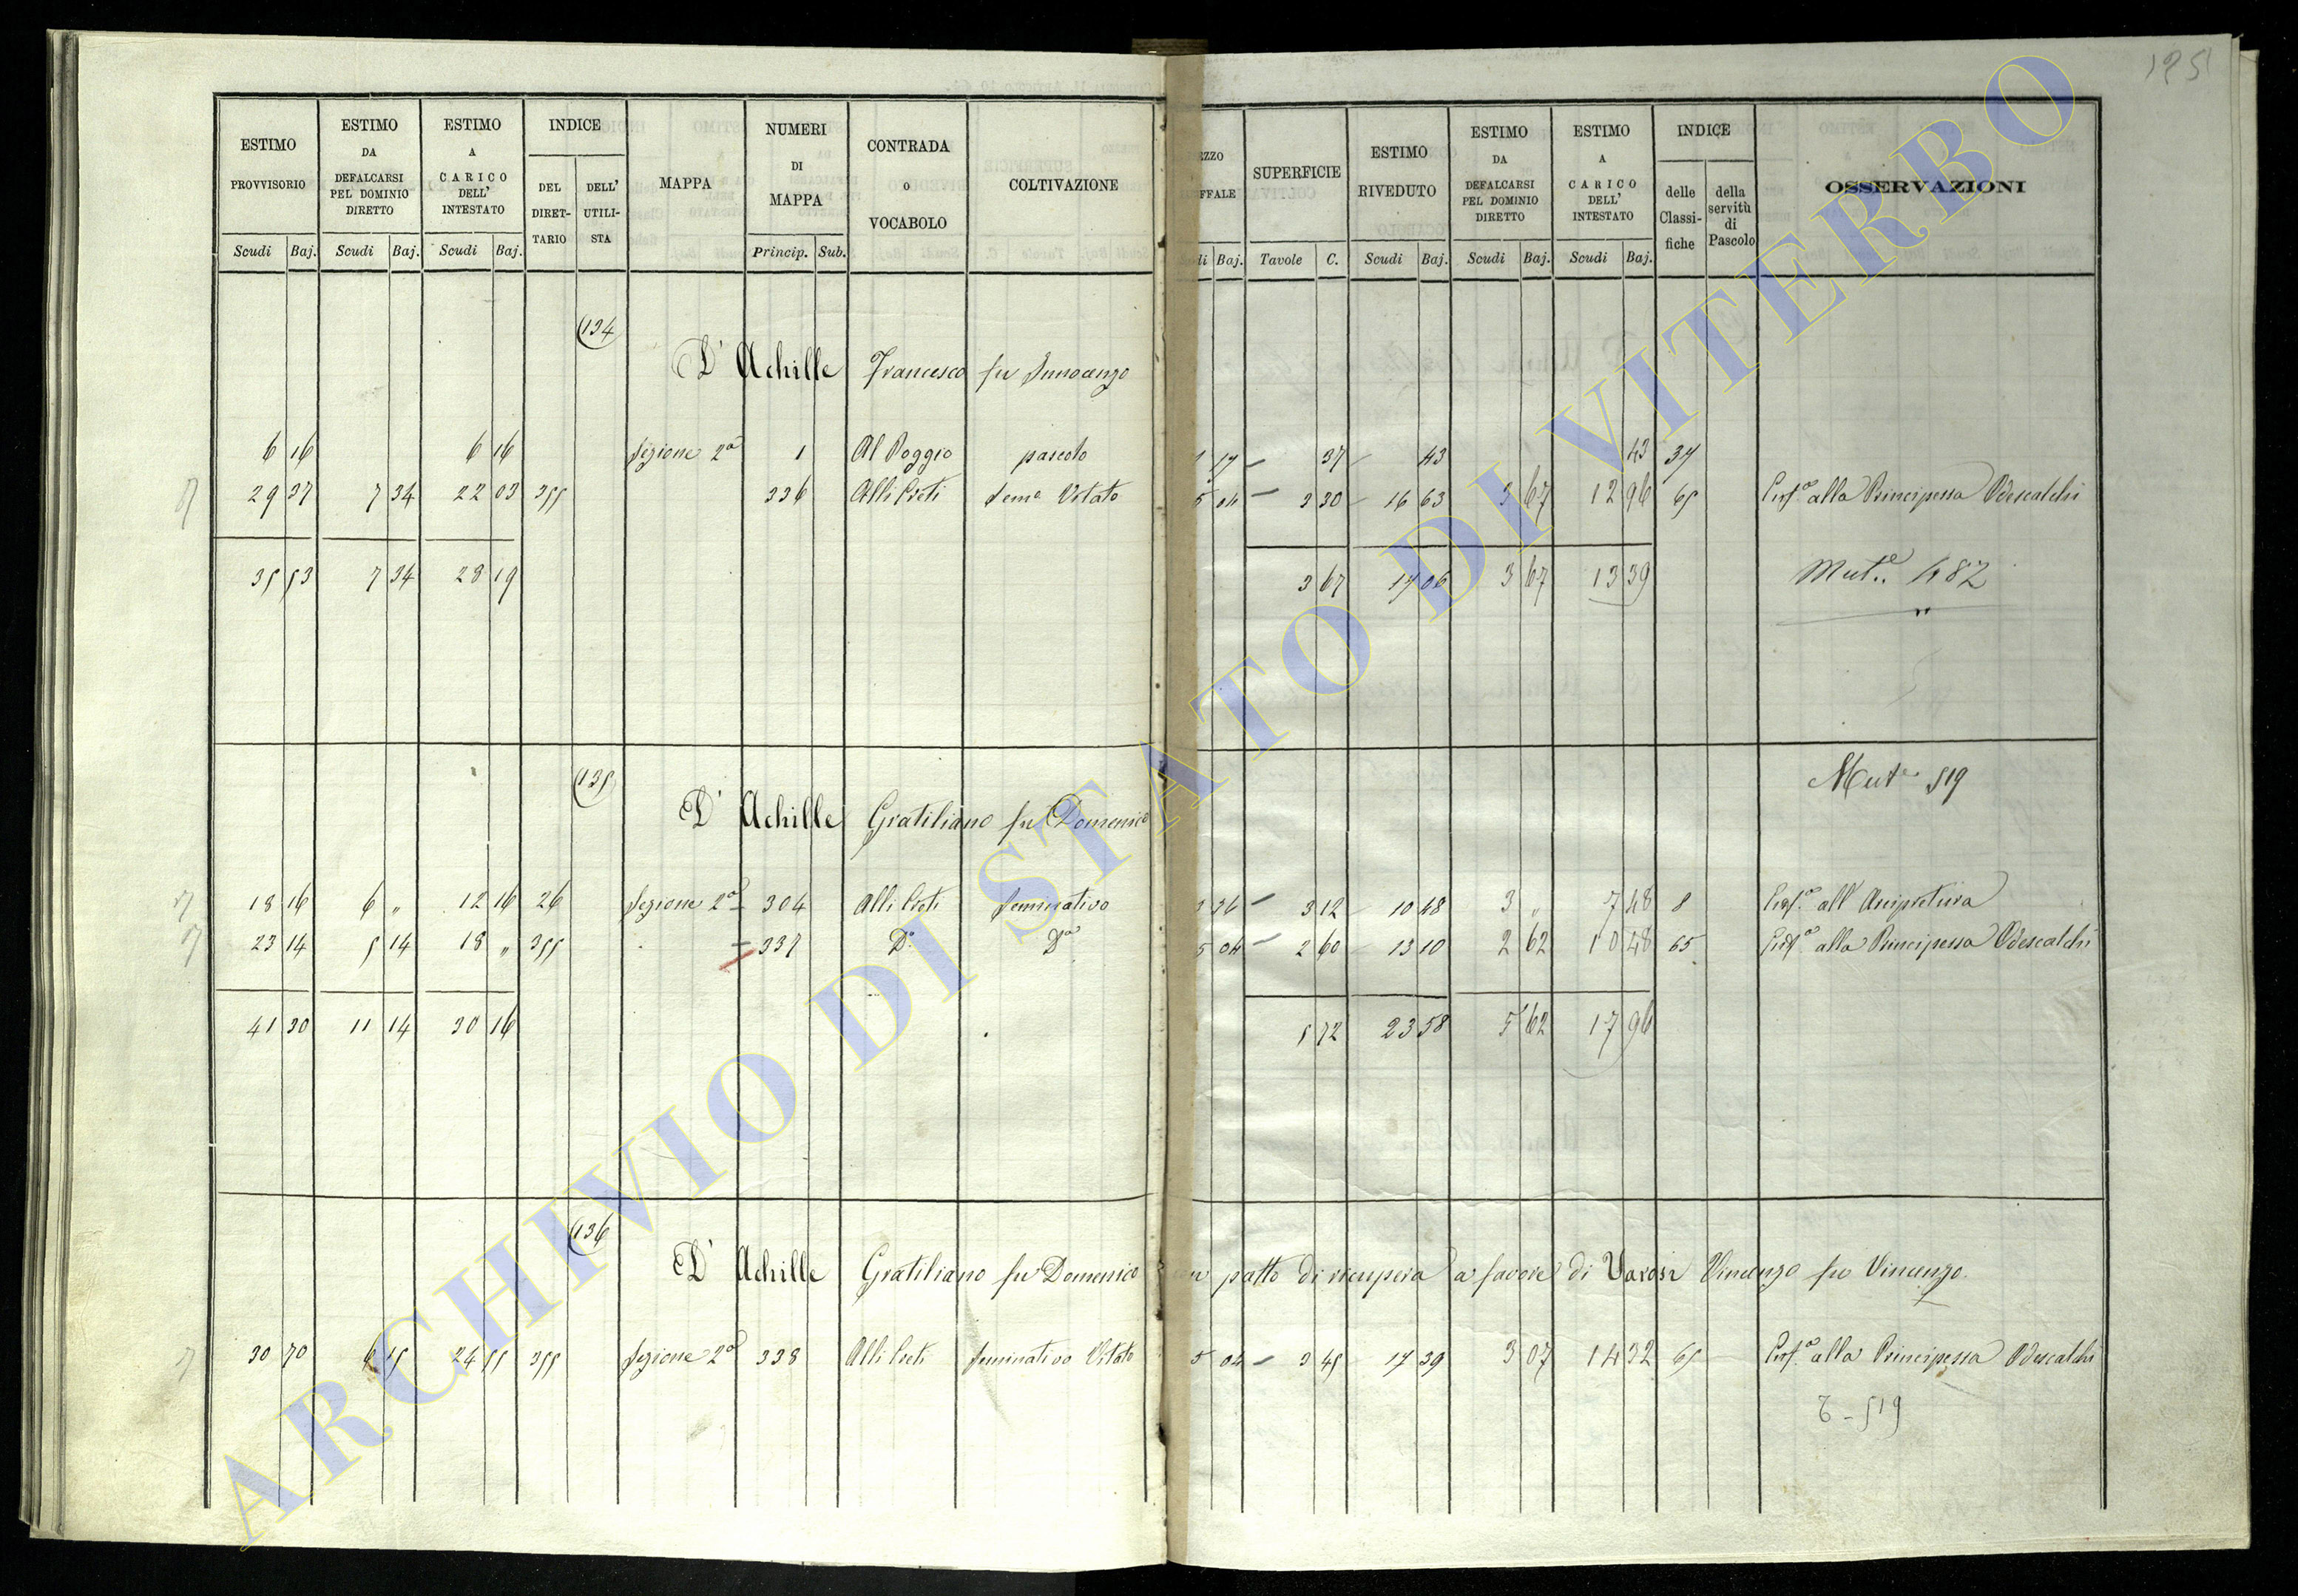 125
ESTIMO PROVVISORIO | ESTIMO DA DEFALCARSI PEL DOMINIO DIRETTO | ESTIMO A CARICO DELL' INTESTATO | INDICE | MAPPA | NUMERI DI MAPPA | CONTRADA O VOCABOLO | COLTIVAZIONE | SUPERFICIE | ESTIMO RIVEDUTO | ESTIMO DA DEFALCARSI PEL DOMINIO DIRETTO | ESTIMO A CARICO DELL' INTESTATO | INDICE | OSSERVAZIONI
DEL DIRETTARIO | DELL' UTILISTA | delle Classifiche | della servitù di Pascolo
Scudi Baj. | Scudi Baj. | Scudi Baj. | Princip. Sub. | Baj. | Tavole C. | Scudi Baj. | Scudi Baj. | Scudi Baj.
134
D' Achille Francesco fu Innocenzo
6 16 | 6 16 | Sezione 2a | 1 | Al Poggio | pascolo | 17 | 37 | 43 | 43 | 37
29 37 | 7 34 | 22 03 | 355 | 336 | Alli Preti | Semo Vitato | 5 04 | 3 30 | 16 63 | 3 67 | 12 96 | 65 | alla Principessa Odescalchi
35 53 | 7 34 | 28 19 | 3 67 | 17 06 | 3 67 | 13 39 | Mut.e 482
135
Mute 519
D' Achille Gratiliano fu Domenico
18 16 | 6 „ | 12 16 | 26 | Sezione 2a | 304 | Alli Preti | Seminativo | 3 12 | 10 48 | 3 „ | 7 48 | 8 | all' Arcipretura
23 14 | 5 14 | 18 „ | 355 | 337 | Do | Do | 5 04 | 2 60 | 13 10 | 2 62 | 10 48 | 65 | alla Principessa Odescalchi
41 30 | 11 14 | 30 16 | 5 72 | 23 58 | 5 62 | 17 96
136
D' Achille Gratiliano fu Domenico | patto di ricupera a favore di Varosi Vincenzo fu Vincenzo
30 70 | 6 15 | 24 55 | 355 | Sezione 2a | 338 | Alli Preti | Seminativo Vitato | 5 04 | 3 45 | 17 39 | 3 07 | 14 32 | 65 | alla Principessa Odescalchi
519
ARCHIVIO DI STATO DI VITERBO